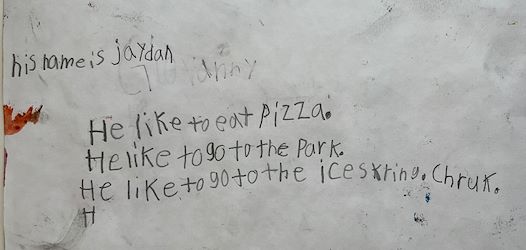 his name is jaydan
He like to eat pizza.
He like to go to the Park.
He like to go to the iceskring. Chruk.
H